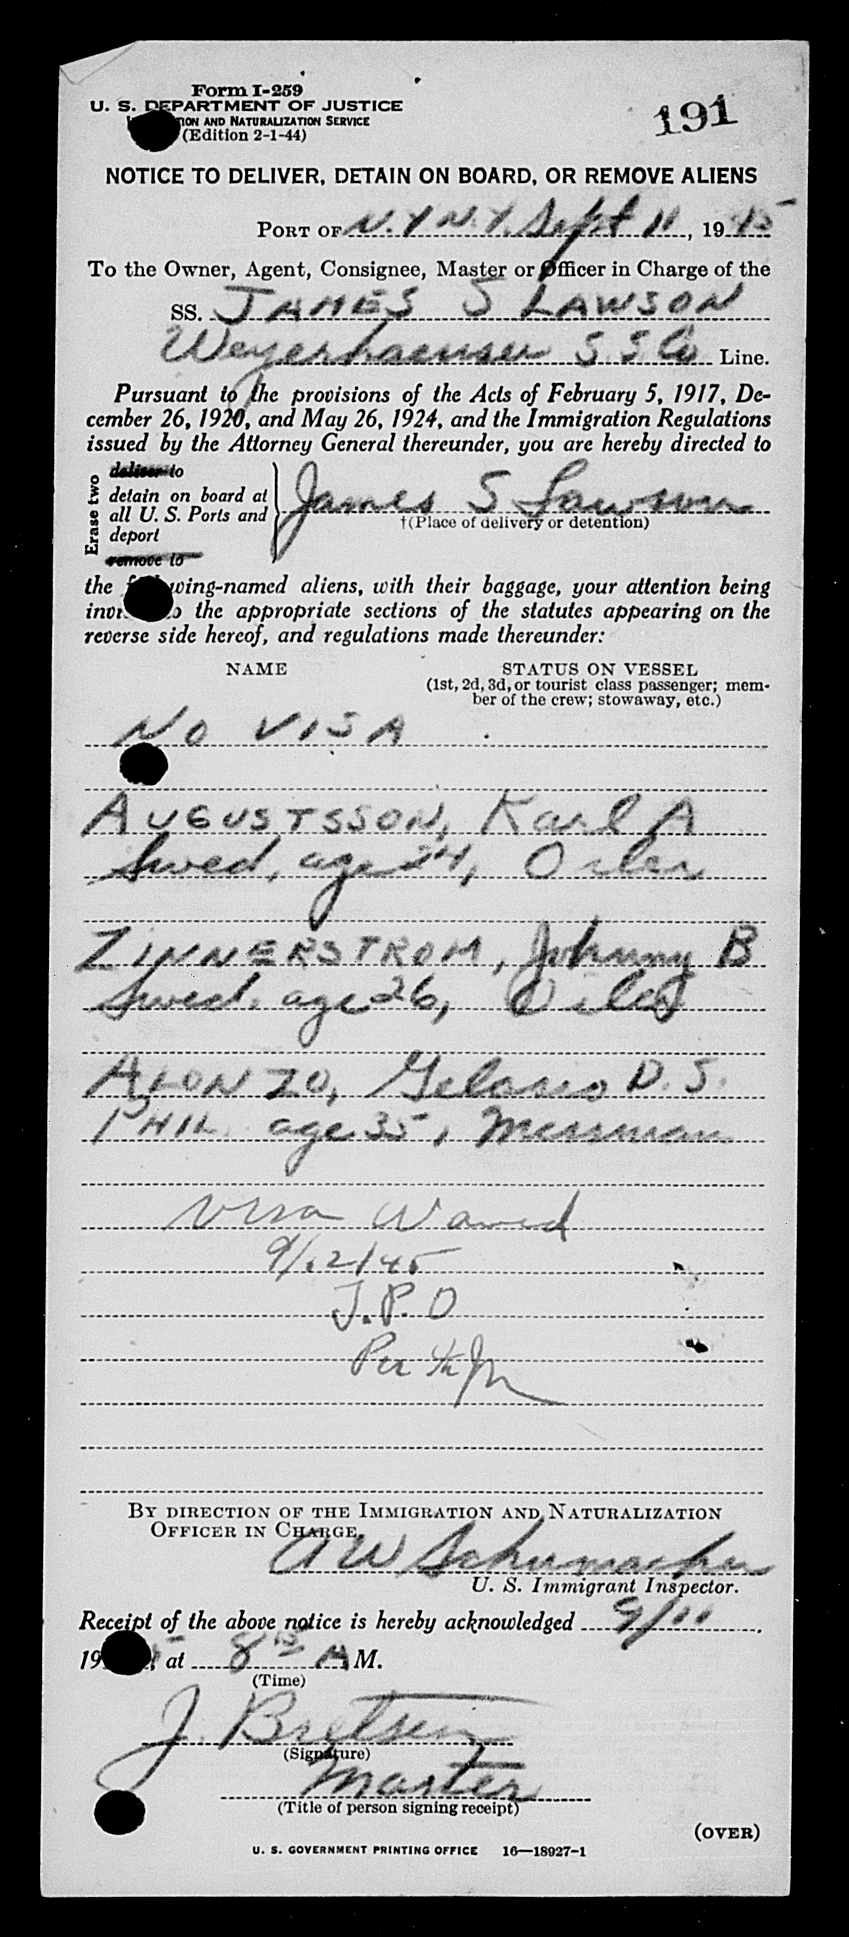 Form I-259
U. S. DEPARTMENT OF JUSTICE
ION AND NATURALIZATION SERVICE
(Edition 2-1-44)
191
NOTICE TO DELIVER, DETAIN ON BOARD, OR REMOVE ALIENS
PORT OF N.Y N.Y. Sept 11, 1945
To the Owner, Agent, Consignee, Master or Officer in Charge of the
SS. JAMES S LAWSON
Weyerhaeuser S.S Co Line.
Pursuant to the provisions of the Acts of February 5, 1917, De-
cember 26, 1920, and May 26, 1924, and the Immigration Regulations
issued by the Attorney General thereunder, you are hereby directed to
Erase two
deliver to
detain on board at
all U. S. Ports and
deport
remove to
James S Lawson
†(Place of delivery or detention)
the following-named aliens, with their baggage, your attention being
invited to the appropriate sections of the statutes appearing on the
reverse side hereof, and regulations made thereunder:
NAME
STATUS ON VESSEL
(1st, 2d, 3d, or tourist class passenger; mem-
ber of the crew; stowaway, etc.)
NO VISA
AUGUSTSSON, Karl A
Swed, age 24, Oiler
ZINNERSTROM, Johnny B
Swed. age 26, Oiler
ALONZO, Gelasio D. S.
PHIL. age 35, Messman
Visa Waived
9/12/45
J.P.O
Per
BY DIRECTION OF THE IMMIGRATION AND NATURALIZATION
OFFICER IN CHARGE.
A W Schumacher
U. S. Immigrant Inspector.
Receipt of the above notice is hereby acknowledged 9/11,
1945, at 8 15 A M.
(Time)
J. Bretsen
(Signature)
Master
(Title of person signing receipt)
(OVER)
U. S. GOVERNMENT PRINTING OFFICE 16—18927-1